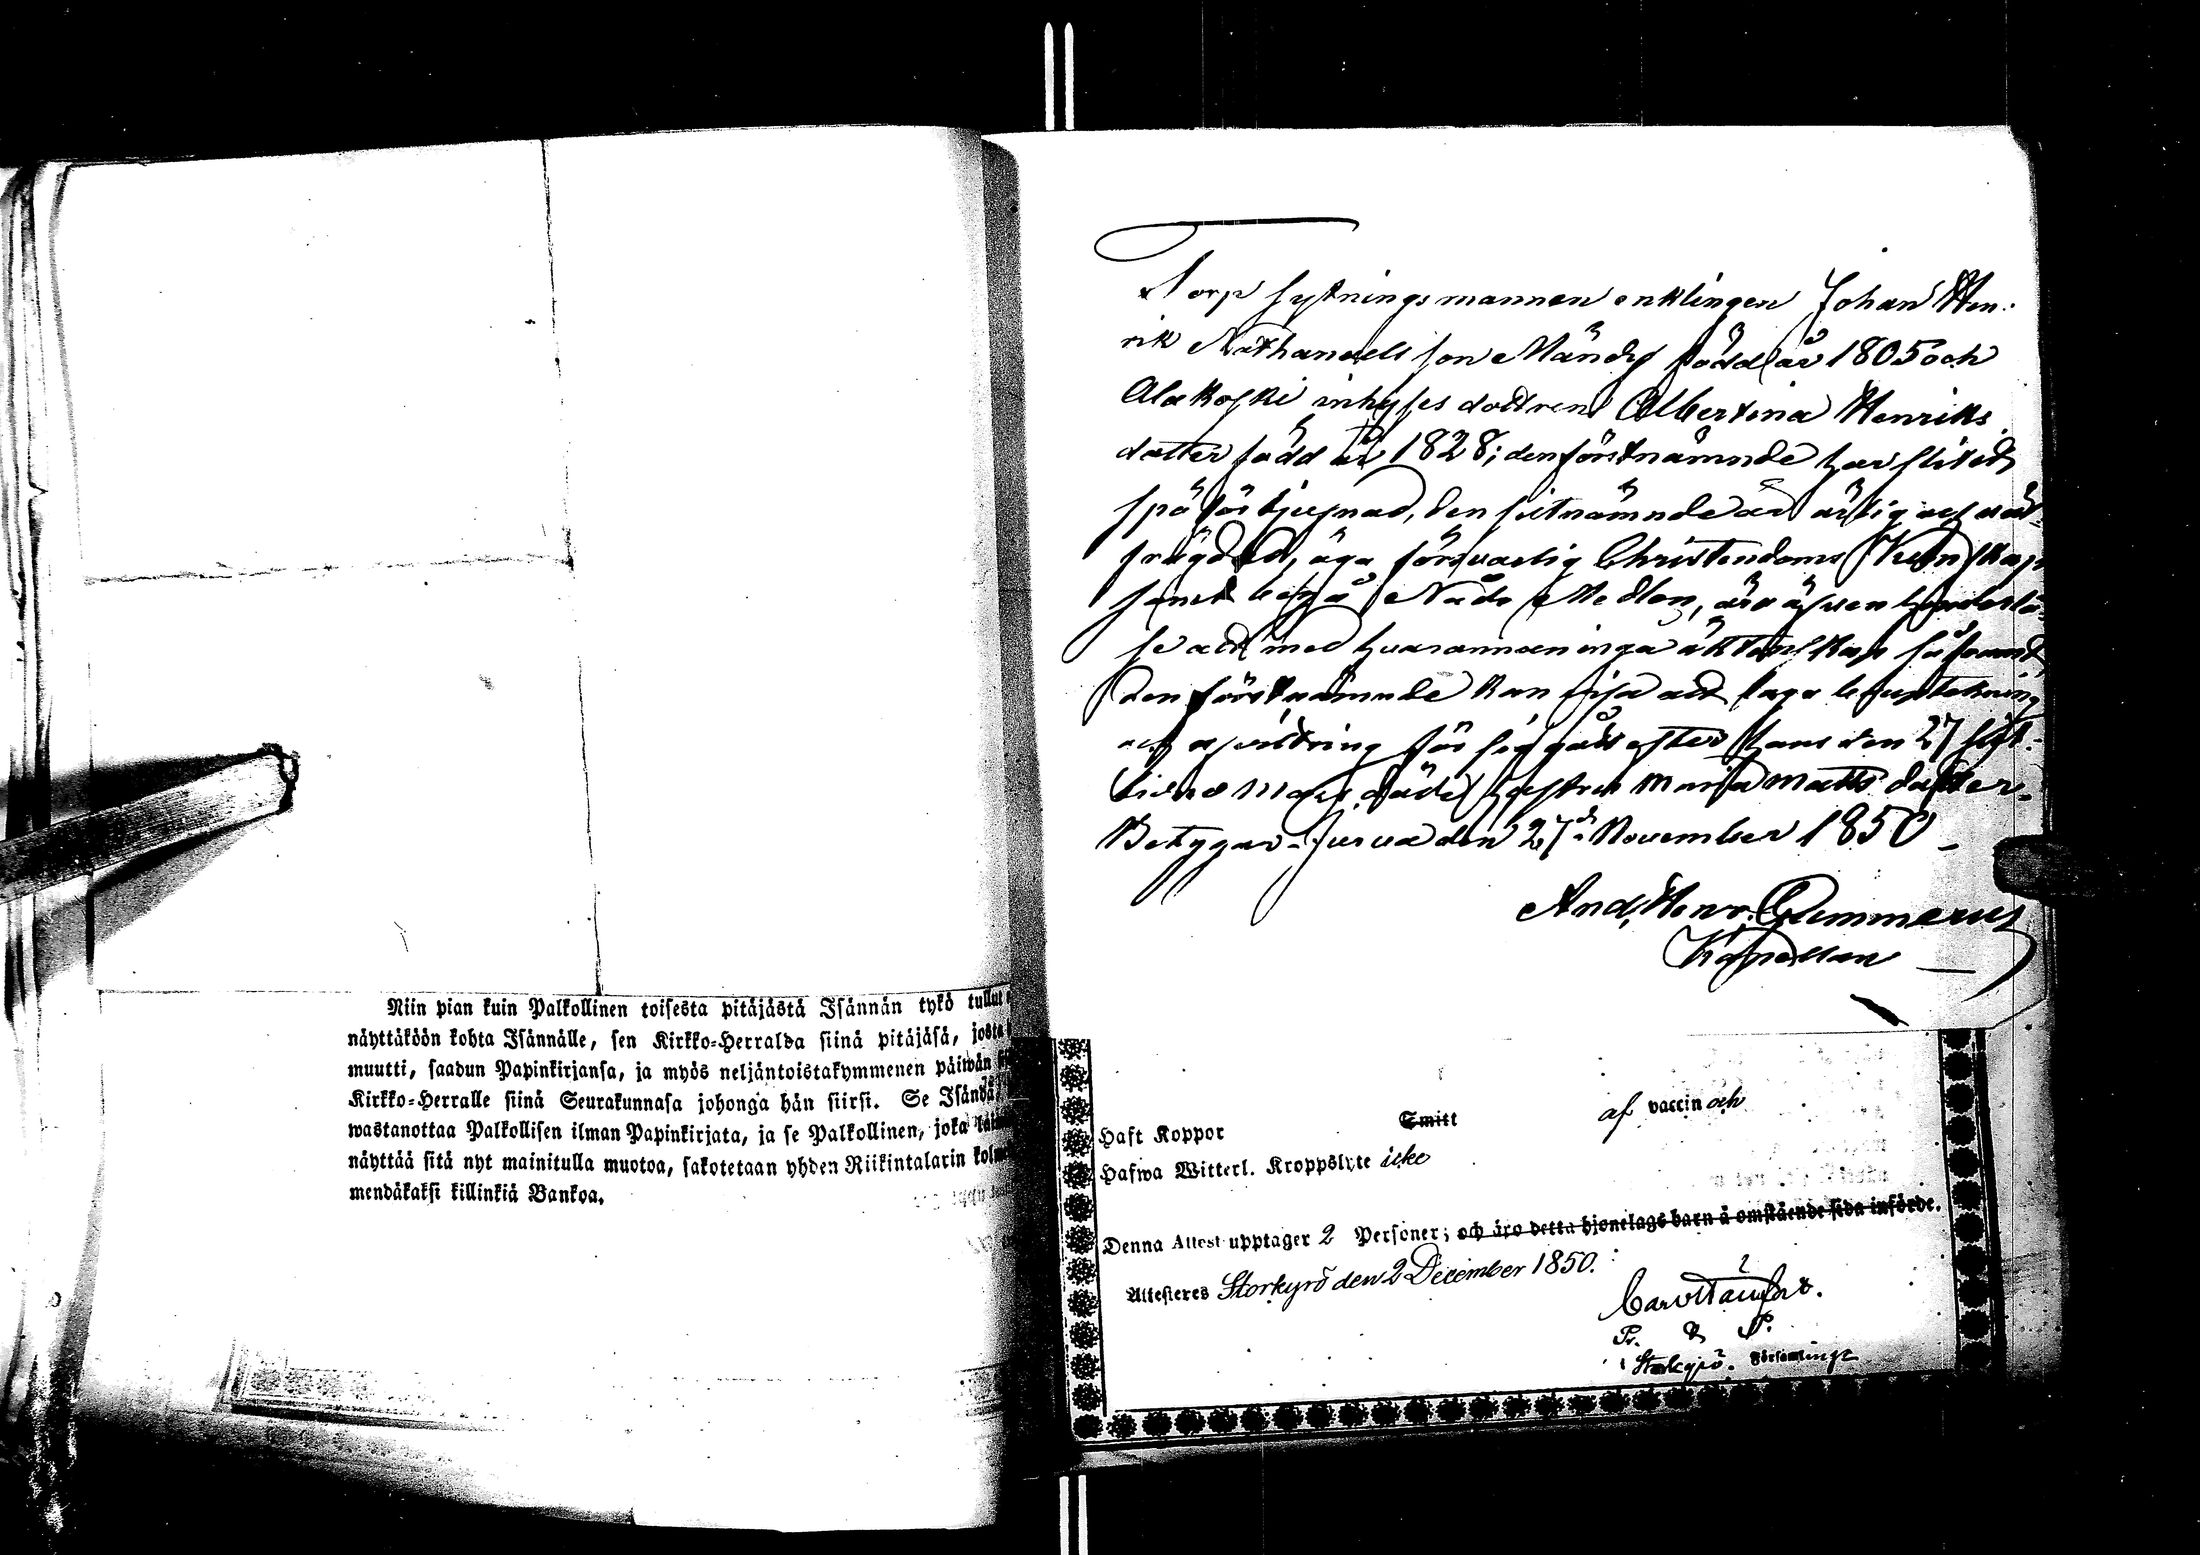 Niin pian kuin Palkollinen toisesta pitäjästä Isännän tykö tullut
näyttäköön kohta Isännälle, sen Kirkko-Herralda siinä pitäjäsä, josta
muutti, saadun Papinkirjansa, ja myös neljäntoistakymmenen päiwän
Kirkko-Herralle siinä Seurakunnasa johonga hän siirsi. Se Isändä
wastanottaa Palkollisen ilman Papinkirjata, ja se Palkollinen, joka
näyttää sitä nyt mainitulla muotoa, sakotetaan yhden Riikintalarin
mendäkaksi killinkiä Bankoa.
Torp sytningsmannen enklingen Johan Hen-
rik Nathanaels son Mändy född år 1805 och
Alakoski inhyses dottren Albertina Henriks
dotter född år 1828; den förstnämnde har
den sistnämnde är ärlig och
äga försvarlig Christendoms Kunskap
samt begå Nåde Medlen, äro äfven hinderlö-
se att med hvarannan inga äktenskap såframt
den förstnämnde kan visa att laga bouptekning
och afvittring för sig gått efter hans den 27 sist-
lidne Mars döde hustru Maria Matts dotter.
Betygar Jurva den 27de November 1850
And. Henr. Gummerus
Kapellan
Haft Koppor Smitt af vaccin och
Hafwa Witterl. Kroppslyte icke
Denna Attest upptager 2 Personer; och äro detta hjonelags barn å omstående sida införde.
Attesteres Storkyrö den 2 December 1850.
Pr. & P.
i Storkyrö. Församlinge